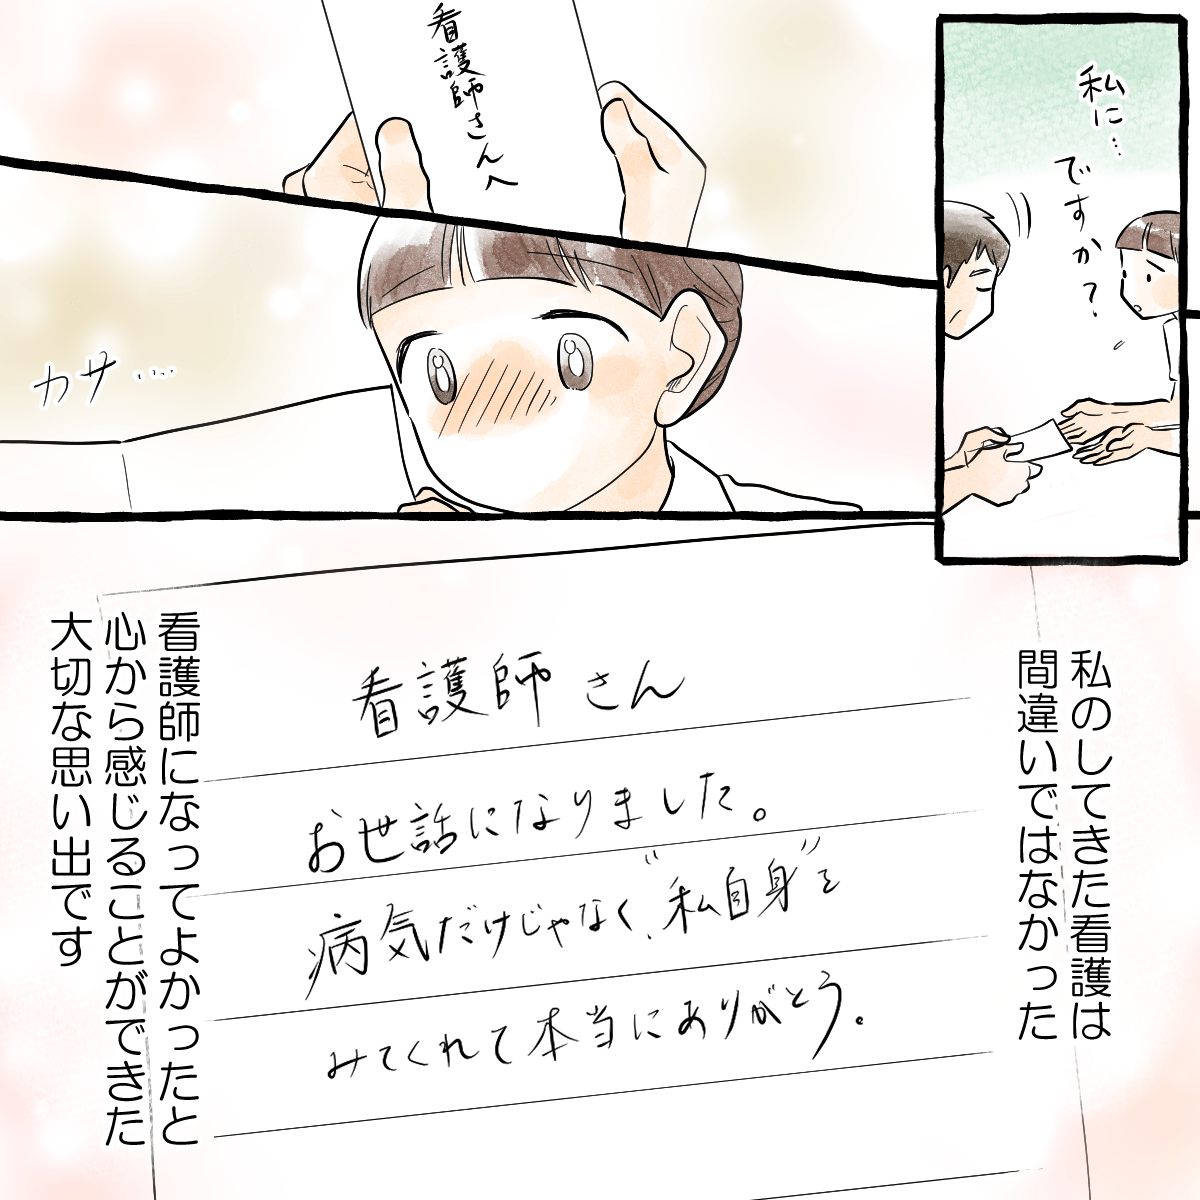 私に…
ですか？
看護師さんへ
カサ….
私のしてきた看護は
間違いではなかった
看護師さん
お世話になりました。
病気だけじゃなく、“私自身”を
みてくれて本当にありがとう。
看護師になってよかったと
心から感じることができた
大切な思い出です